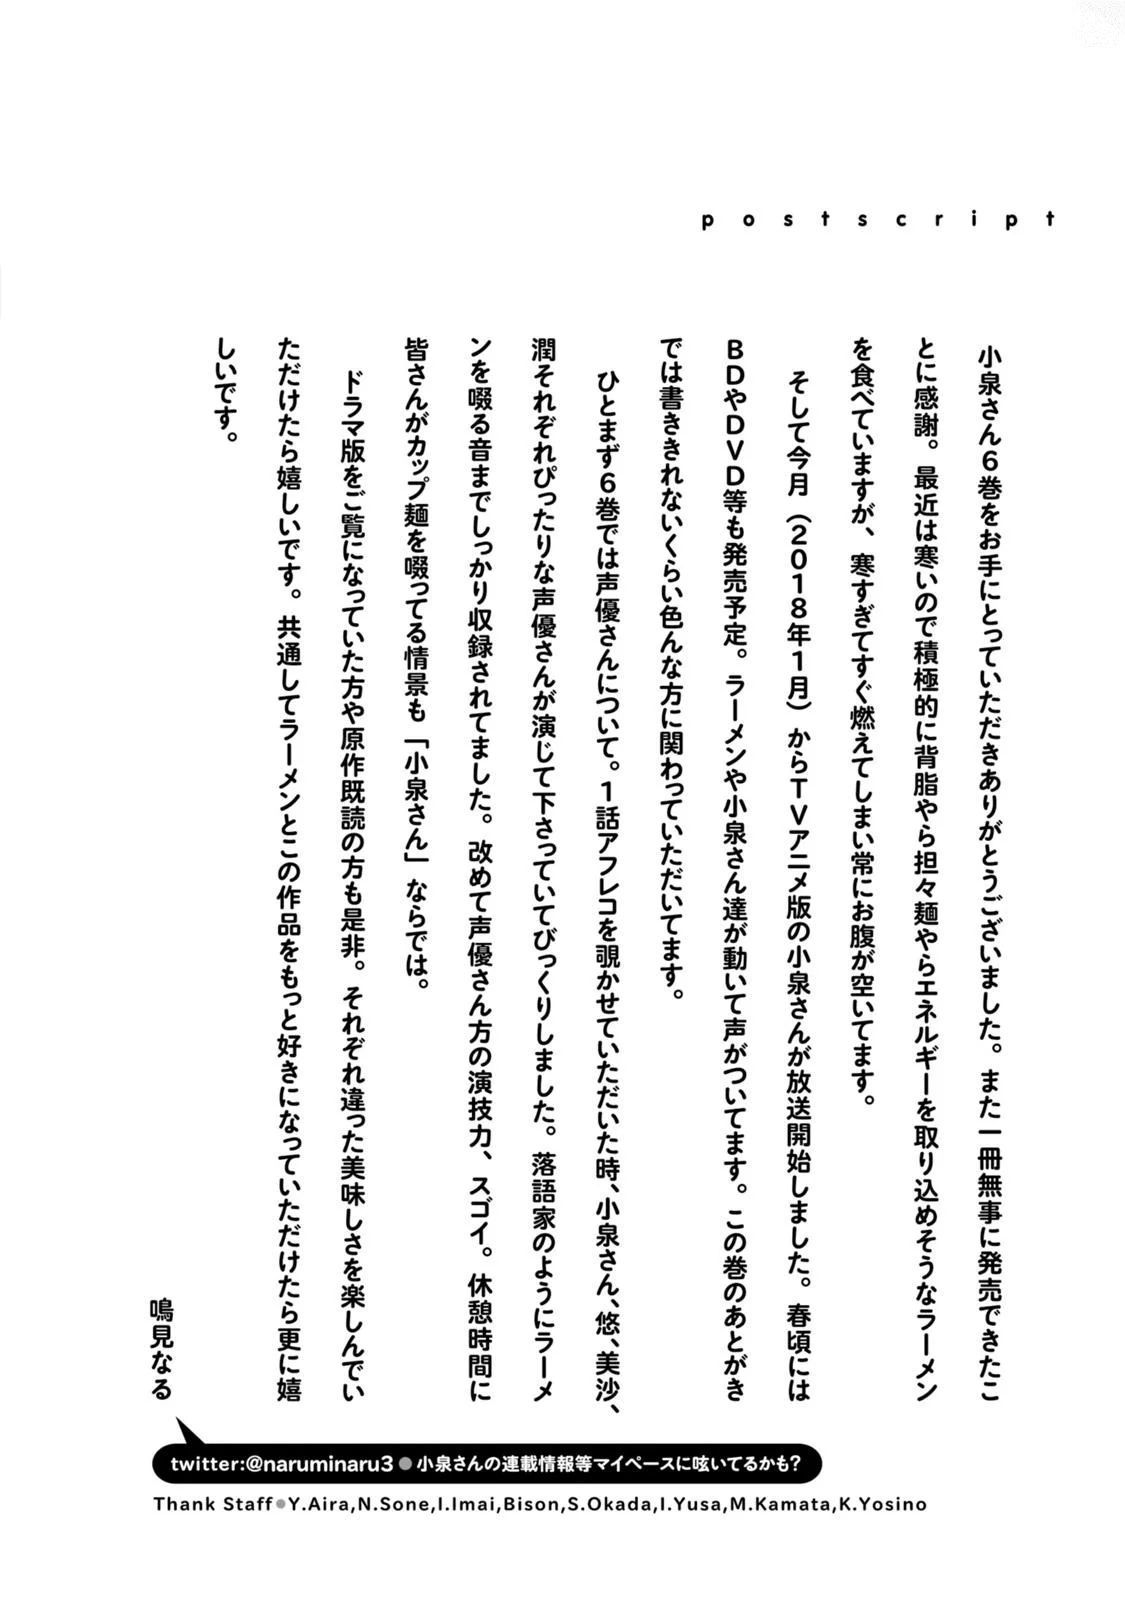 postscript
小泉さん6巻をお手にとっていただきありがとうございました。また一冊無事に発売できたこ
とに感謝。最近は寒いので積極的に背脂やら担々麺やらエネルギーを取り込めそうなラーメン
を食べていますが、寒すぎてすぐ燃えてしまい常にお腹が空いてます。
そして今月（2018年1月）からTVアニメ版の小泉さんが放送開始しました。春頃には
BDやDVD等も発売予定。ラーメンや小泉さん達が動いて声がついてます。この巻のあとがき
では書ききれないくらい色んな方に関わっていただいてます。
ひとまず6巻では声優さんについて。1話アフレコを覗かせていただいた時、小泉さん、悠、美沙、
潤それぞれぴったりな声優さんが演じて下さっていてびっくりしました。落語家のようにラーメ
ンを啜る音までしっかり収録されてました。改めて声優さん方の演技力、スゴイ。休憩時間に
皆さんがカップ麺を啜ってる情景も「小泉さん」ならでは。
ドラマ版をご覧になっていた方や原作既読の方も是非。それぞれ違った美味しさを楽しんでい
ただけたら嬉しいです。共通してラーメンとこの作品をもっと好きになっていただけたら更に嬉
しいです。
鳴見なる
twitter:@naruminaru3●小泉さんの連載情報等マイペースに呟いてるかも?
Thank Staff●Y.Aira,N.Sone,I.Imai,Bison,S.Okada,I.Yusa,M.Kamata,K.Yosino